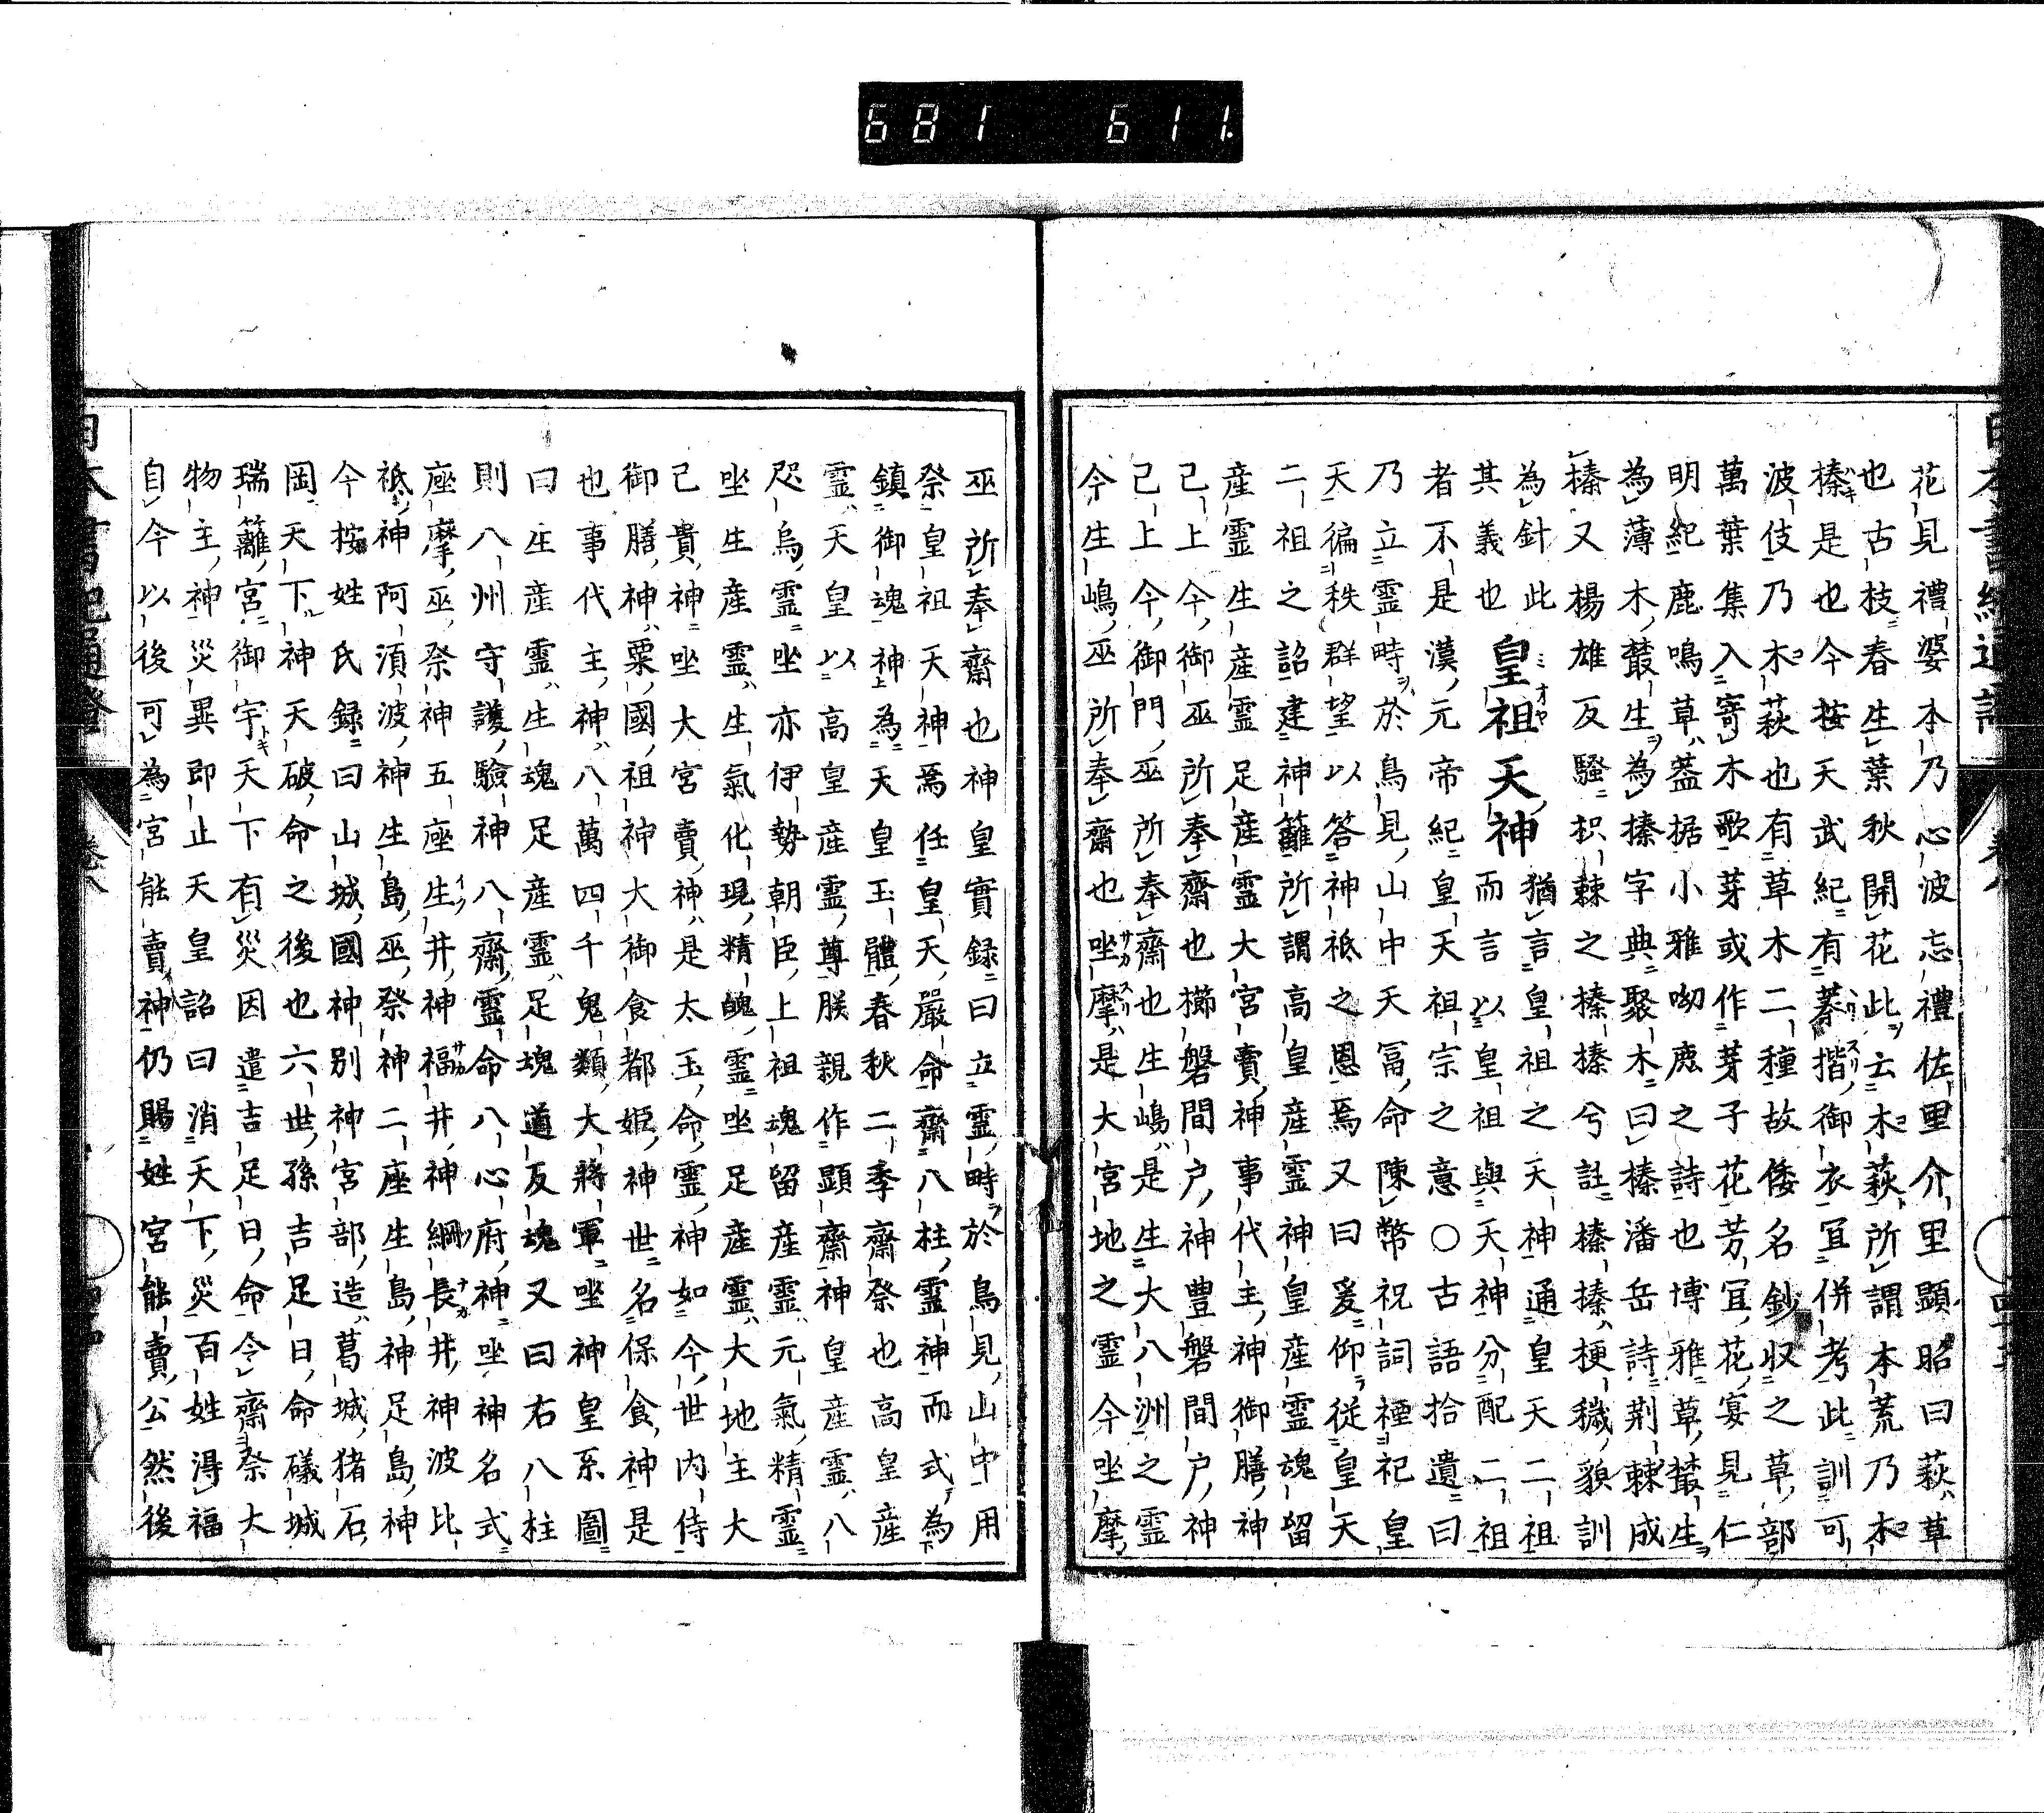 681 611.
花見禮婆本乃心波忘禮佐里介里顯昭曰萩草
也古枝春生葉秋開花此云木萩所謂本荒乃木
榛是也今按天武紀有蓁揩御衣冝併考此訓可
波伎乃木萩也有草木二種故倭名鈔収之草部
萬葉集入寄木歌芽或作芽子花芳冝花宴見仁
明紀鹿鳴草葢据小雅呦鹿之詩也博雅草藂生
為薄木藂生為榛字典聚木曰榛潘岳詩荆棘成
榛又楊雄反騷枳棘之榛榛兮註榛榛梗穢貌訓
為針此
其義也 皇祖天神 猶言皇祖之天神通皇天二祖
而言以皇祖與天神分配二祖
者不是漢元帝紀皇天祖宗之意○古語拾遺曰
乃立霊畤於鳥見山中天冨命陳幣祝詞禋祀皇
天徧秩群望以答神祇之恩焉又曰爰仰従皇天
二祖之詔建神籬所謂高皇産霊神皇産霊魂留
産霊生産霊足産霊大宮賣神事代主神御膳神
已上今御巫所奉齋也櫛磐間戸神豊磐間戸神
已上今御門巫所奉齋也生嶋是生大八洲之霊
今生嶋巫所奉齋也坐摩是大宮地之霊今坐摩
巫所奉齋也神皇實録曰立霊畤於鳥見山中用
祭皇祖天神焉任皇天嚴命齋八柱霊神而式為
鎮御魂神為天皇玉體春秋二季齋祭也高皇産
霊天皇以高皇産霊尊朕親作顕齋神皇産霊八
咫烏霊坐亦伊勢朝臣上祖魂留産霊元氣精霊
坐生産霊生氣化現精魄霊坐足産霊大地主大
己貴神坐大宮賣神是太玉命霊神如今世内侍
御膳神粟國祖神大御食都姫神世名保食神是
也事代主神八萬四千鬼類大將軍坐神皇系圖
曰生産霊生魂足産霊足魂道反魂又曰右八柱
則八州守護驗神八齋霊命八心府神坐神名式
座摩巫祭神五座生井神福井神綱長井神波比
祇神阿湏波神生島巫祭神二座生島神足島神
今按姓氏録曰山城國神別神宮部造葛城猪石
岡天下神天破命之後也六世孫吉足日命礒城
瑞籬宮御宇天下有災因遣吉足日命令齋祭大
物主神災異即止天皇詔曰消天下災百姓得福
自今以後可為宮能賣神仍賜姓宮能賣公然後